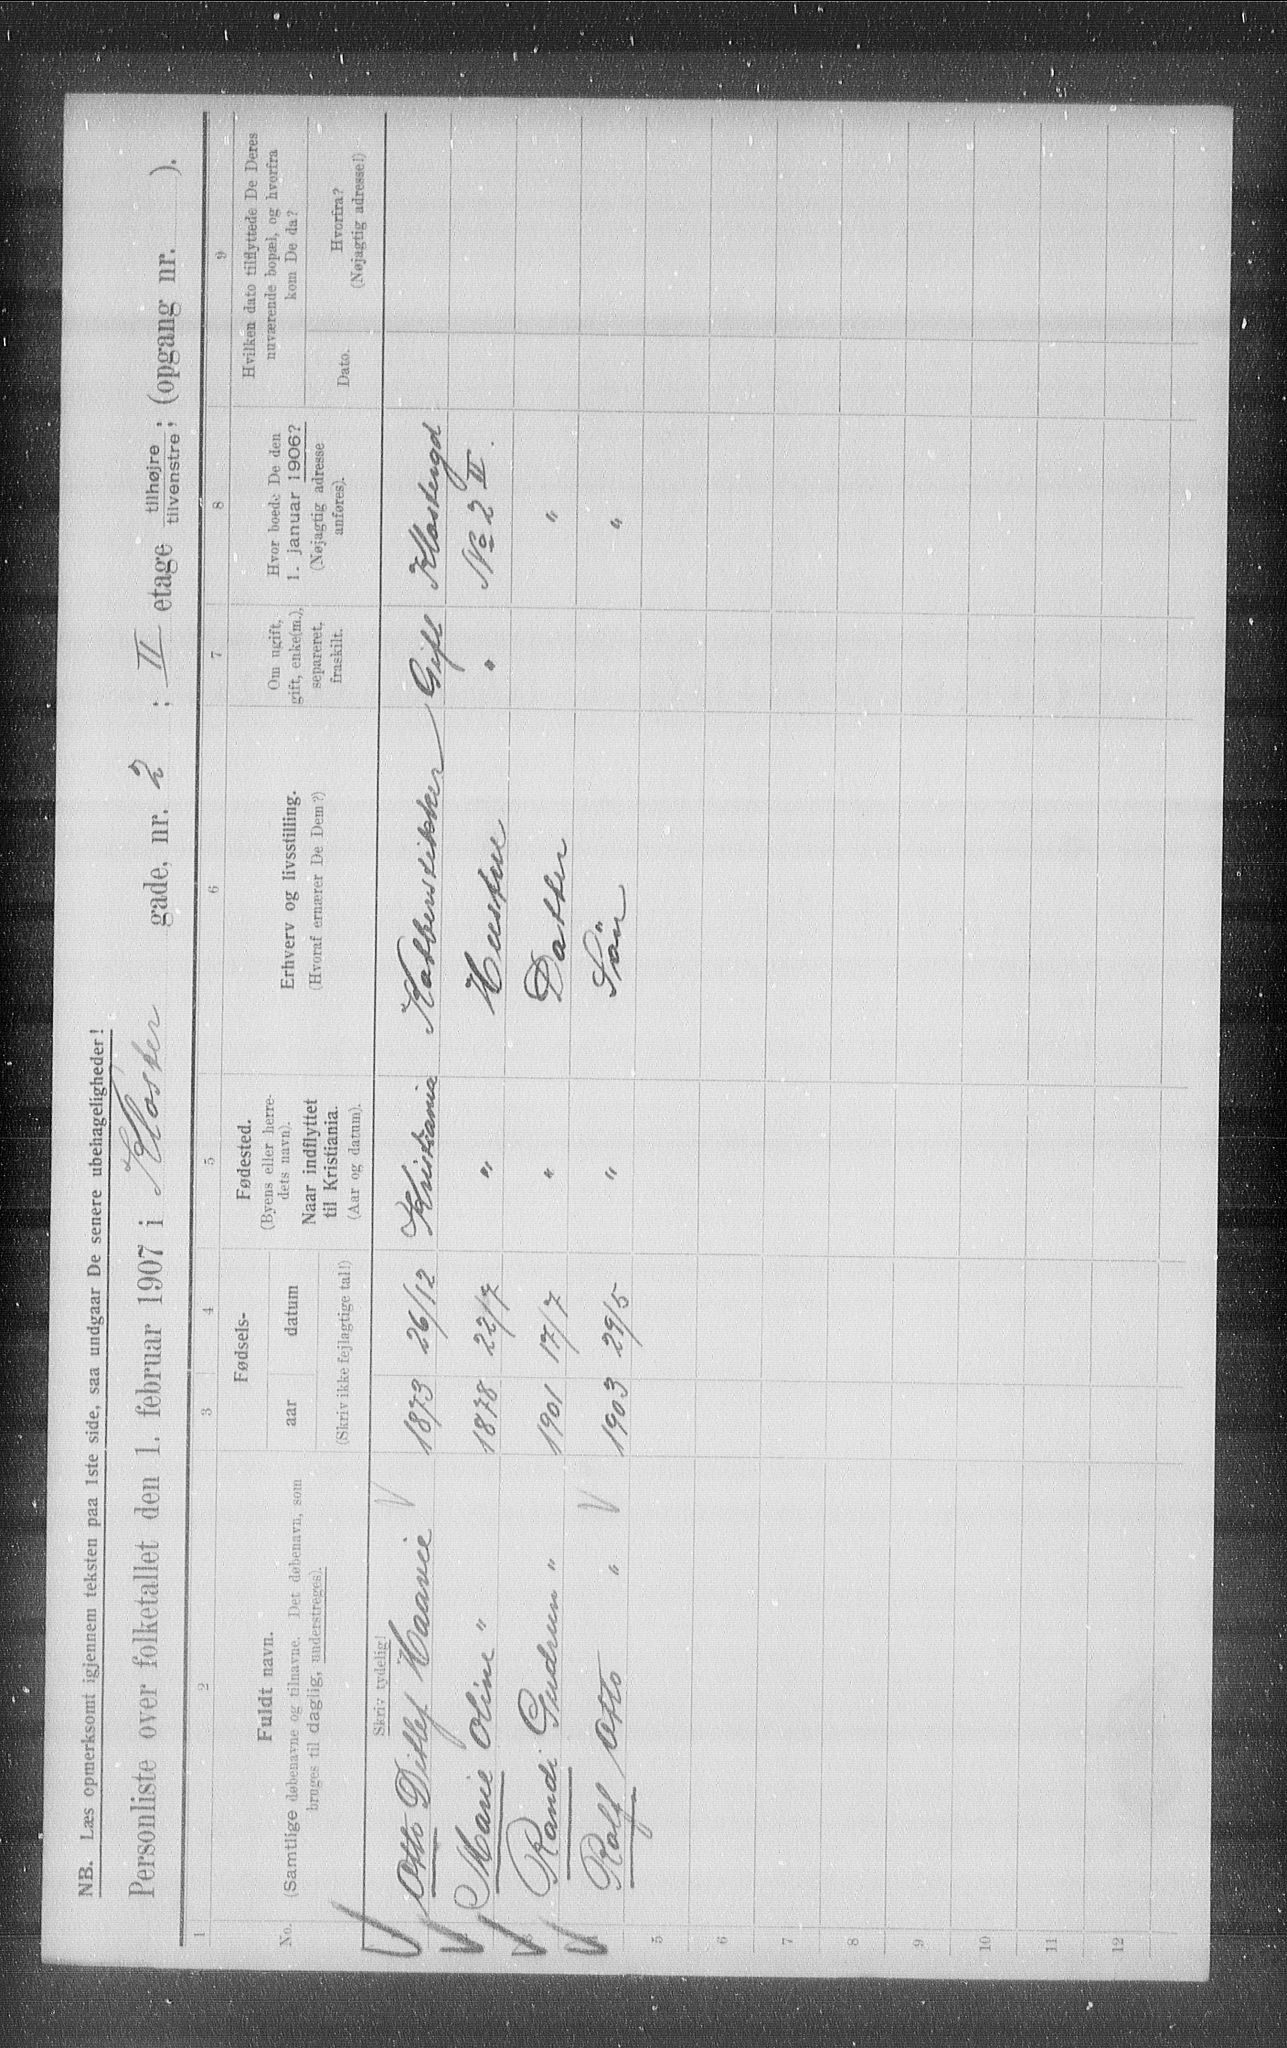 NB. Læs opmerksomt igjennem teksten paa 1ste side, saa undgaar De senere ubehageligheder!
Personliste over folketallet den 1. februar 1907 i Kloster gade, nr. 2 ; II etage tilhøjre / tilvenstre ; (opgang nr. ).
1 2 3 4 5 6 7 8 9
No.
Fuldt navn.
(Samtlige døbenavne og tilnavne. Det døbenavn, som
bruges til daglig, understreges).
Fødsels-
aar datum
(Skriv ikke fejlagtige tal!)
Fødested.
(Byens eller herre-
dets navn).
Naar indflyttet
til Kristiania.
(Aar og datum).
Erhverv og livsstilling.
(Hvoraf ernærer De Dem?)
Om ugift,
gift, enke(m.),
separeret,
fraskilt.
Hvor boede De den
1. januar 1906?
(Nøjagtig adresse
anføres).
Hvilken dato tilflyttede De Deres
nuværende bopæl, og hvorfra
kom De da?
Dato.
Hvorfra?
(Nøjagtig adresse!)
Skriv tydelig!
Otto Ditlef 1873 26/12 Kristiania Gift Klostergd
Marie Oline " 1878 22/7 " Hustru " No 2 II.
3 Randi Gudrun " 1901 17/7 " Datter "
4 Rolf Otto " 1903 29/5 " Sön "
5
6
7
8
9
10
11
12